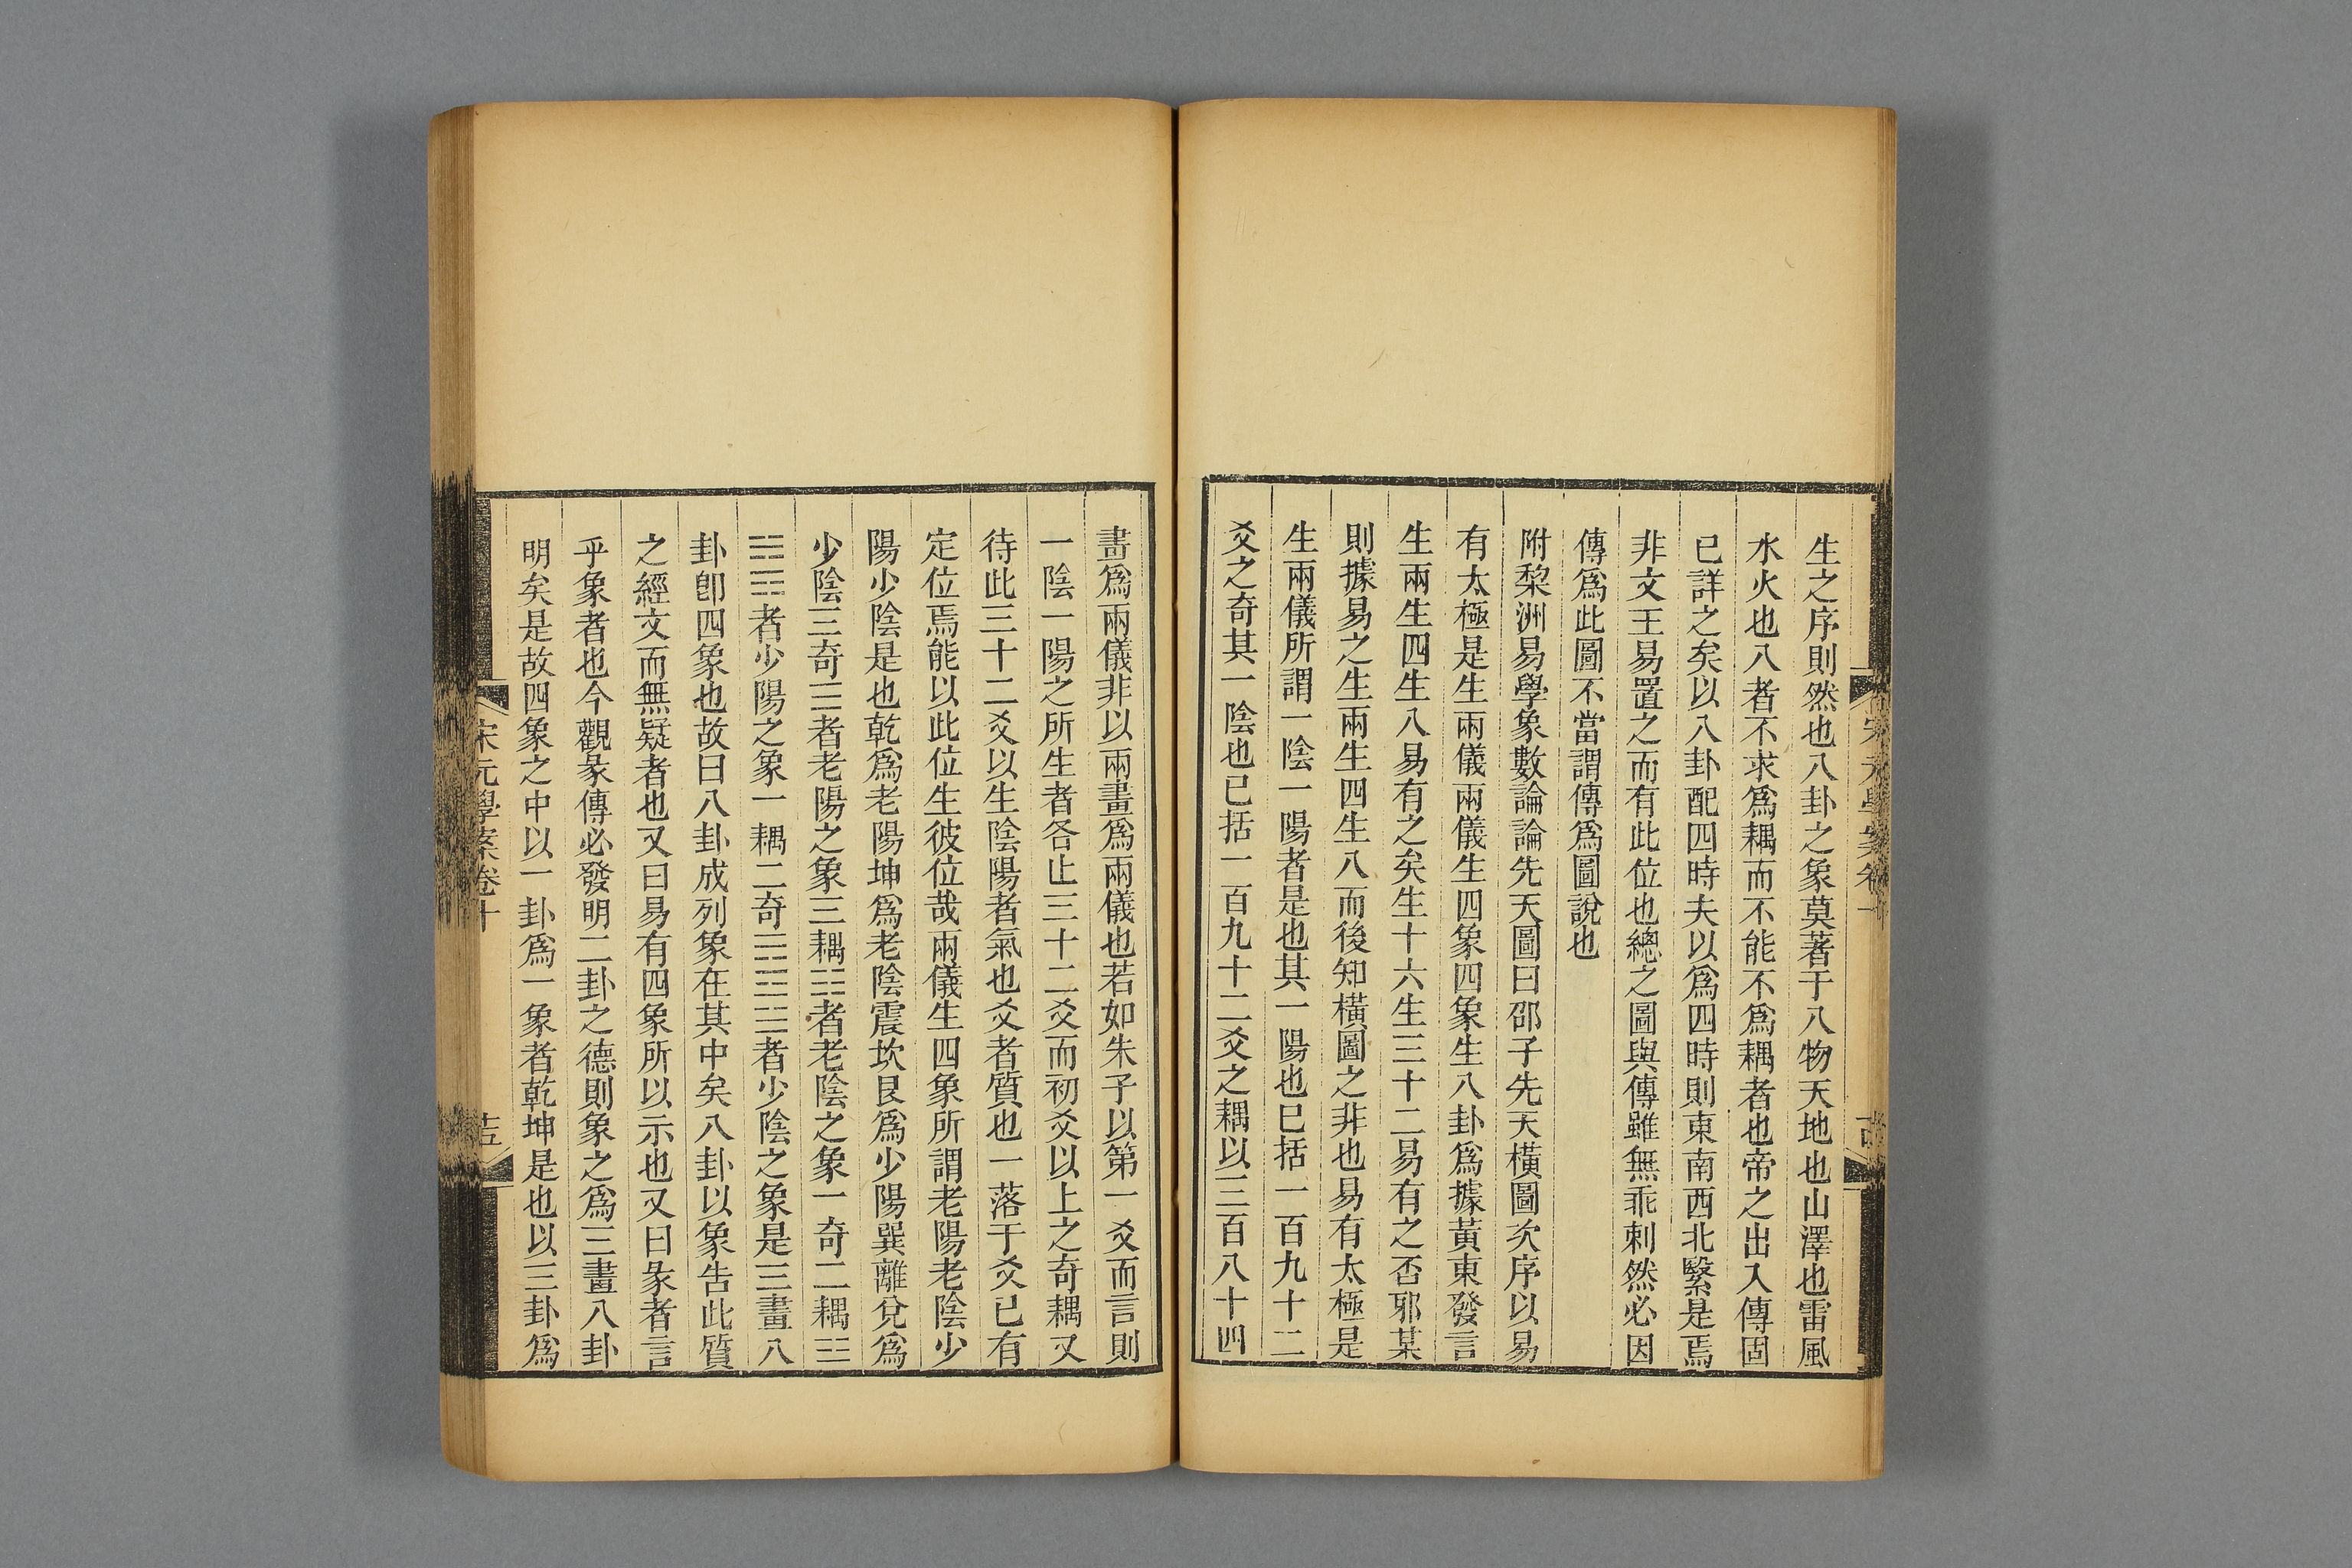 生之序則然也八卦之象莫著于八物天地也山澤也雷風
水火也八者不求爲耦而不能不爲耦者也帝之出入傳固
已詳之矣以八卦配四時夫以爲四時則東南西北繫是焉
非文王易置之而有此位也總之圖與傳雖無乖刺然必因
傳爲此圖不當謂傳爲圖說也
附黎洲易學象數論論先天圖曰邵子先天橫圖次序以易
有太極是生兩儀兩儀生四象四象生八卦爲據黃東發言
生兩生四生八易有之矣生十六生三十二易有之否邪某
則據易之生兩生四生八而後知橫圖之非也易有太極是
生兩儀所謂一陰一陽者是也其一陽也已括一百九十二
爻之奇其一陰也已括一百九十二爻之耦以三百八十四
畫爲兩儀非以兩畫爲兩儀也若如朱子以第一爻而言則
一陰一陽之所生者各止三十二爻而初爻以上之奇耦又
待此三十二爻以生陰陽者氣也爻者質也一落于爻已有
定位焉能以此位生彼位哉兩儀生四象所謂老陽老陰少
陽少陰是也乾爲老陽坤爲老陰震坎艮爲少陽巽離兌爲
少陰三奇☰者老陽之象三耦☷者老陰之象一奇二耦☳
☵☶者少陽之象一耦二奇☴☲☱者少陰之象是三畫八
卦卽四象也故曰八卦成列象在其中矣八卦以象告此質
之經文而無疑者也又曰易有四象所以示也又曰彖者言
乎象者也今觀彖傳必發明二卦之德則象之爲三畫八卦
明矣是故四象之中以一卦爲一象者乾坤是也以三卦爲
宋元學案卷十